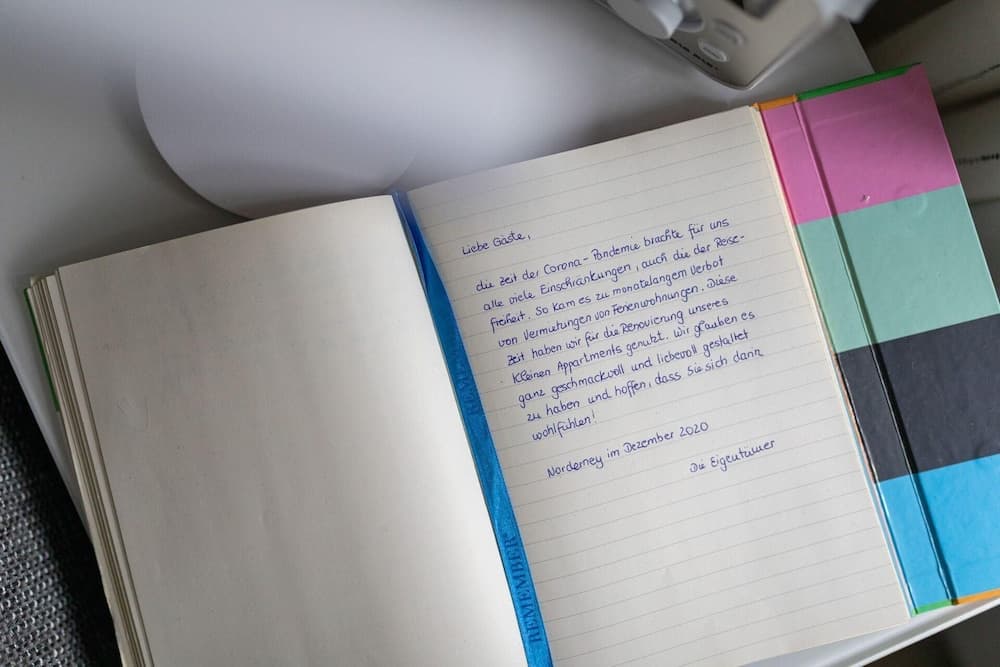 Liebe Gäste,
die Zeit der Corona-Pandemie brachte für uns
alle viele Einschränkungen, auch die der Reise-
freiheit. So kam es zu monatelangem Verbot
von Vermietungen von Ferienwohnungen. Diese
Zeit haben wir für die Renovierung unseres
kleinen Appartments genutzt. Wir glauben es
ganz geschmackvoll und liebevoll gestaltet
zu haben und hoffen, dass Sie sich darin
wohlfühlen!
Norderney im Dezember 2020
Die Eigentümer
REMEMBER